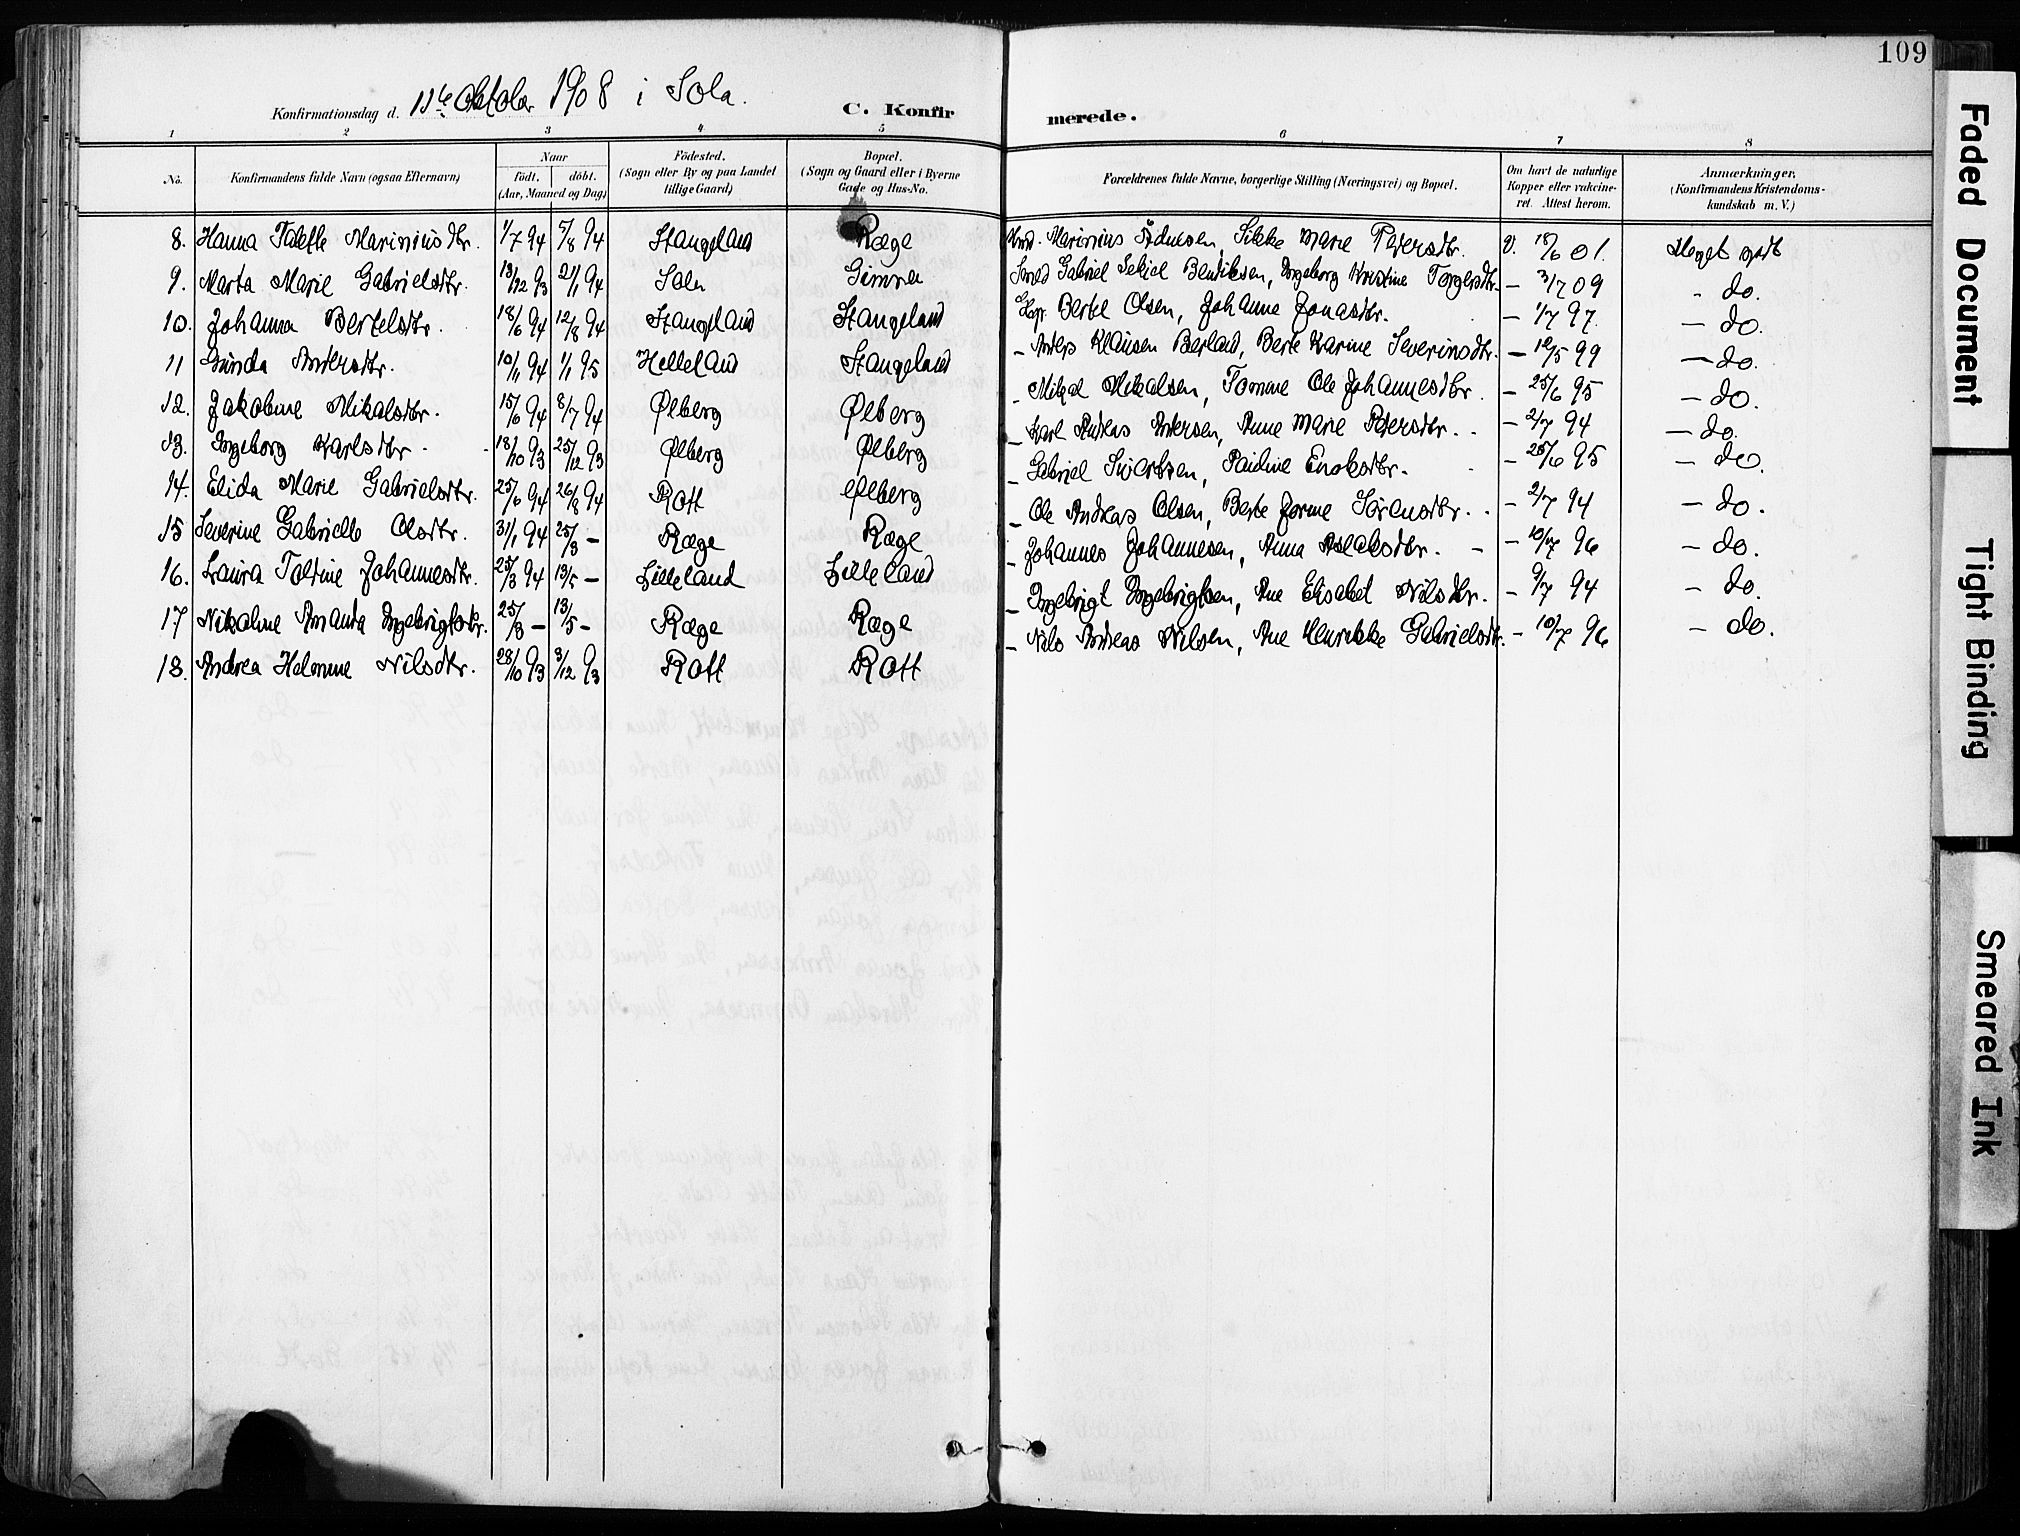 109
Konfirmationsdag d. 11te Oktober 1908 i Sola. C. Konfirmerede.
1 2 3 4 5 6 7 8
No. Konfirmandens fulde Navn (ogsaa Efternavn) Naar födt. döbt. (Aar, Maaned og Dag) Födested. (Sogn eller By og paa Landet tillige Gaard) Bopæl. (Sogn og Gaard eller i Byerne Gade og Hus-No. Forældrenes fulde Navne, borgerlige Stilling (Næringsvei) og Bopæl. Om havt de naturlige Kopper eller vaccineret. Attest herom. Anmærkninger. (Konfirmandens Kristendomskundskab m. V.)
8. Hanna Tolette Marinius dtr. 1/7 94 5/8 94 Stangeland Ræge Marinius Sikke Marie Pedersdtr. V. 18/6 01. Meget godt
9. Marta Marie Gabrielsdtr. 13/12 93 21/1 94 Sola Gimra Gabriel Bendiksen, Ingeborg Kristine Torgersdtr. - 3/7 09 - do.
10. Johanna Bertelsdtr. 18/6 94 12/8 94 Stangeland Stangeland Bertel Olsen, Johanne Jonasdtr. - 1/7 97. - do.
11 Gunda Andersdtr. 10/11 94 1/1 95 Helleland Stangeland - Anders Klausen Berland, Berte Karine Severinsdtr. - 10/5 99 - do.
12. Jakobine Mikalsdtr. 15/6 94 8/7 94 Ølberg Ølberg - Mikal Mikalsen, Tomine Ole Johannesdtr. - 25/6 95 - do.
13. Ingeborg Karlsdtr. 18/10 93 25/12 93 Ølberg Ølberg - Karl Andreas Andersen, Anne Marie Pedersdtr. - 2/7 94 - do.
14. Elida Marie Gabrielsdtr. 25/6 94 26/8 94 Rott Ølberg - Gabriel Sivertsen, Pauline Enoksdtr. - 25/6 95 - do.
15 Severine Gabrielle Olsdtr. 31/1 94 25/3 - Ræge Ræge - Ole Andreas Olsen, Berte Jorine Sörensdtr. - 2/7 94 - do.
16. Laura Toldine Johannesdtr. 25/3 94 13/5 - Lilleland Lilleland - Johannes Johannesen, Anna Aslaksdtr. - 10/7 96 - do.
17 Nikoline Amanda Ingebrigtsdtr. 25/3 - 13/5 - Ræge Ræge - Ingebrigt Ingebrigtsen, Ane Elisabet Nilsdtr. - 9/7 94 - do.
18. Andrea Helmine Nilsdtr. 28/10 93 3/12 93 Rott Rott - Nils Andreas Nilsen, Ane Henrikke Gabrielsdtr. - 10/7 96 - do.
Faded Document
Tight Binding
Smeared Ink